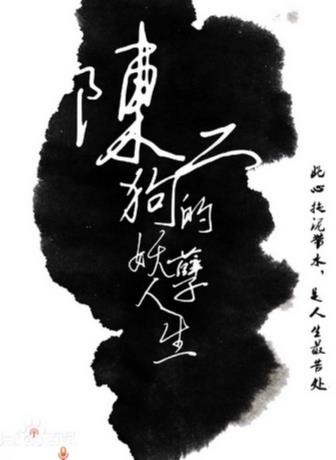 陳二狗的妖孽人生
此心拖泥带水，是人生最苦处